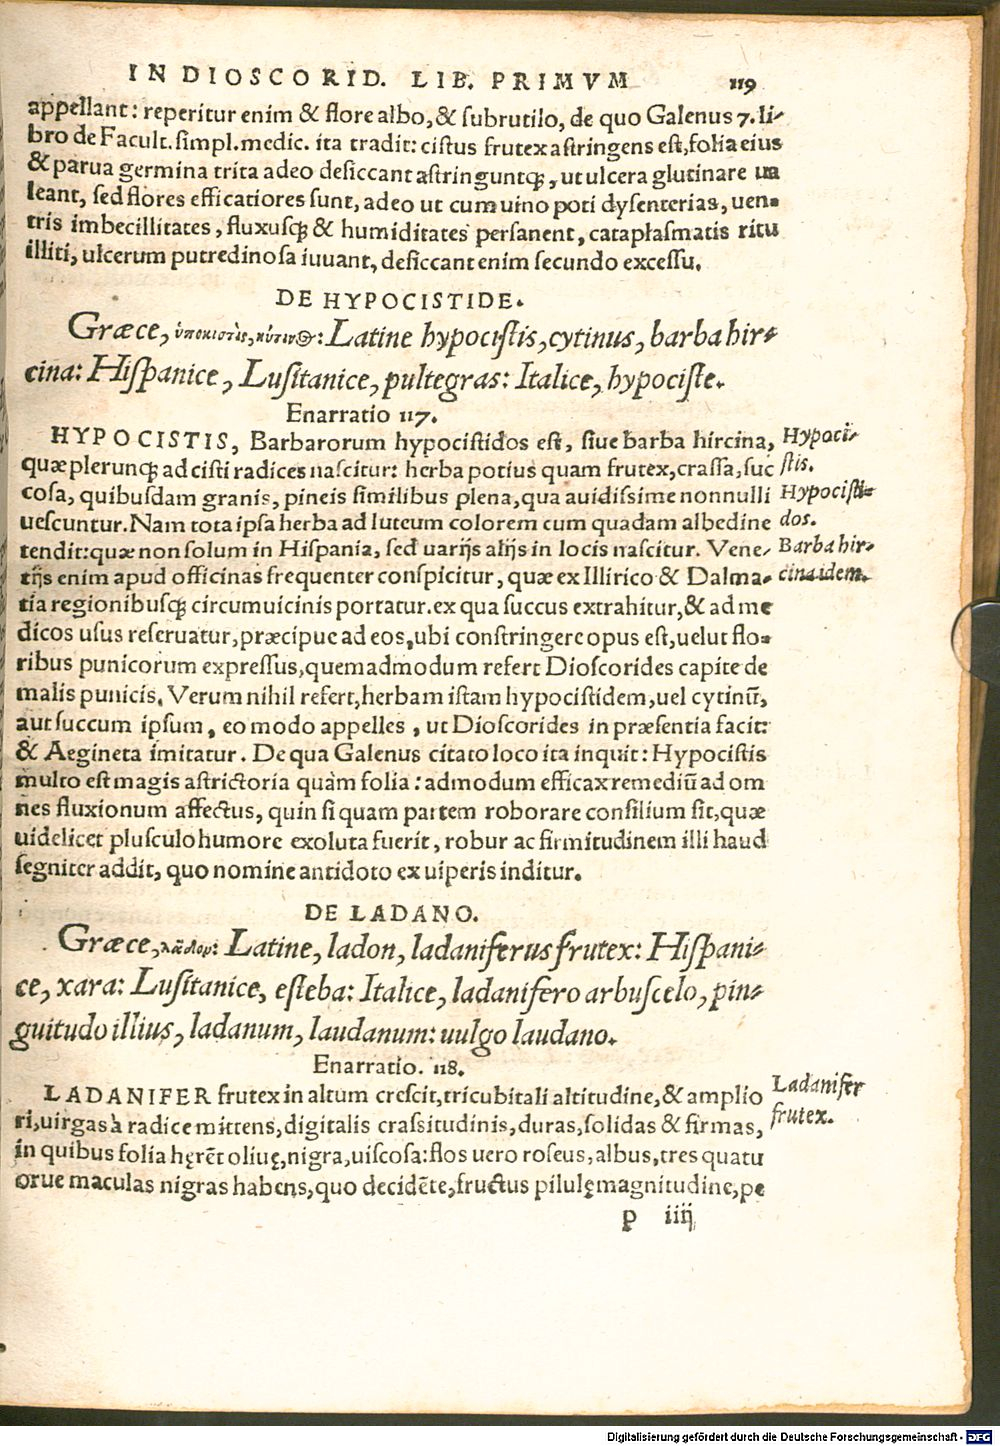 IN DIOSCORID. LIB. PRIMVM 119
appellant: reperitur enim & flore albo, & subrutilo, de quo Galenus 7. li-
bro de Facult. simpl. medic. ita tradit: cistus frutex astringens est, folia eius
& parua germina trita adeo desiccant astringuntq;, ut ulcera glutinare ua
leant, sed flores efficatiores sunt, adeo ut cum uino poti dysenterias, uen-
tris imbecillitates, fluxusq; & humiditates persanent, cataplasmatis ritu
illiti, ulcerum putredinosa iuuant, desiccant enim secundo excessu.
DE HYPOCISTIDE.
Græce, ὑποκιστὶς, κύτινος: Latine hypocistis, cytinus, barba hir-
cina: Hispanice, Lusitanice, pultegras: Italice, hypociste.
Enarratio 117.
HYPOCISTIS, Barbarorum hypocistidos est, siue barba hircina,
quæ plerunq; ad cisti radices nascitur: herba potius quam frutex, crassa, suc
cosa, quibusdam granis, pineis similibus plena, qua auidissime nonnulli
uescuntur. Nam tota ipsa herba ad luteum colorem cum quadam albedine
tendit: quæ non solum in Hispania, sed uarijs alijs in locis nascitur. Vene-
tijs enim apud officinas frequenter conspicitur, quæ ex Illirico & Dalma-
tia regionibusq; circumuicinis portatur. ex qua succus extrahitur, & ad me
dicos usus reseruatur, præcipue ad eos, ubi constringere opus est, uelut flo-
ribus punicorum expressus, quemadmodum refert Dioscorides capite de
malis punicis. Verum nihil refert, herbam istam hypocistidem, uel cytinū,
aut succum ipsum, eo modo appelles, ut Dioscorides in præsentia facit:
& Aegineta imitatur. De qua Galenus citato loco ita inquit: Hypocistis
multo est magis astrictoria quàm folia: admodum efficax remediū ad om
nes fluxionum affectus, quin si quam partem roborare consilium sit, quæ
uidelicet plusculo humore exoluta fuerit, robur ac firmitudinem illi haud
segniter addit, quo nomine antidoto ex uiperis inditur.
Hypoci-
stis.
Hypocisti-
dos.
Barba hir-
cina idem.
DE LADANO.
Græce, λάδον: Latine, ladon, ladaniferus frutex: Hispani-
ce, xara: Lusitanice, esteba: Italice, ladanifero arbuscelo, pin-
guitudo illius, ladanum, laudanum: uulgo laudano.
Enarratio. 118.
LADANIFER frutex in altum crescit, tricubitali altitudine, & amplio
ri, uirgas à radice mittens, digitalis crassitudinis, duras, solidas & firmas,
in quibus folia hęrēt oliuę, nigra, uiscosa: flos uero roseus, albus, tres quatu
orue maculas nigras habens, quo decidēte, fructus pilulę magnitudine, pe
Ladanifer
frutex.
p iiij
Digitalisierung gefördert durch die Deutsche Forschungsgemeinschaft - DFG